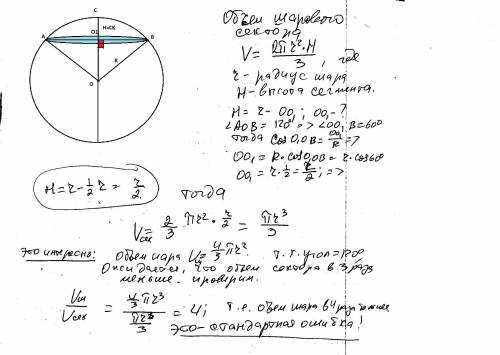 C
O1
H=CK
A
B
R
O
Объем шарового
сектора
V = 2πr²·H / 3, где
r - радиус шара
H - высота сегмента.
H = r - OO₁; OO₁ - ?
∠AOB = 120° => ∠OO₁B = 60°
тогда cos O₁OB = OO₁/R =>
OO₁ = R·cos O₁OB = r·cos 60
OO₁ = r·1/2 = r/2; =>
H = r - 1/2 r = r/2
тогда
Vсек = 2/3 πr²·r/2 = πr³/3
Это интересно: Объем шара Vш = 4/3 πr³. т.к. угол = 120°
Ожидалось, что объем сектора в 3 раза
меньше. проверим.
Vш / Vсек = (4/3 πr³) / (πr³/3) = 4; т.е. объем шара в 4 раза больше
это - стандартная ошибка!